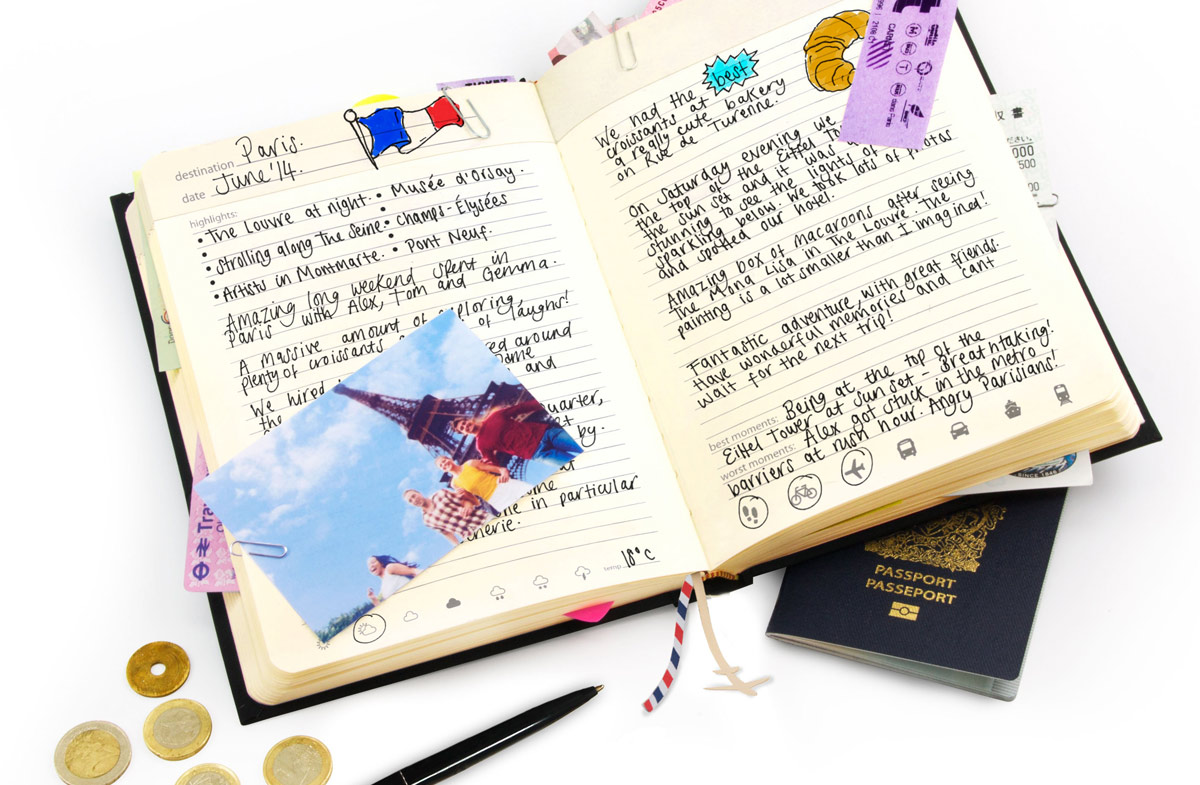 destination Paris.
date June '14.
highlights:
• The Louvre at night. • Musée d'Orsay.
• strolling along the Seine • Champs-Élysées
• Artists in Montmarte. • Pont Neuf.
Amazing long weekend spent in
Paris with Alex, Tom and Gemma.
A massive amount of exploring,
plenty of croissants of laughs!
We hired around
the some
and
quarter,
by.
in particular
18°C
We had the best
croissants at
a really cute bakery
on Rue de Turenne.
On Saturday evening we
the top of the Eiffel
the sun set and it was
stunning to see the lights of
sparkling below. We took lots of photos
and spotted our hotel.
Amazing box of macaroons after seeing
The Mona Lisa in The Louvre. The
painting is a lot smaller than I imagined!
Fantastic adventure, with great friends.
Have wonderful memories and can't
wait for the next trip!
best moments: Being at the top of the
Eiffel Tower at sun set - Breathtaking!
worst moments: Alex got stuck in the metro
barriers at rush hour. Angry Parisians!
TICKET
SINCE
PASSPORT
PASSEPORT